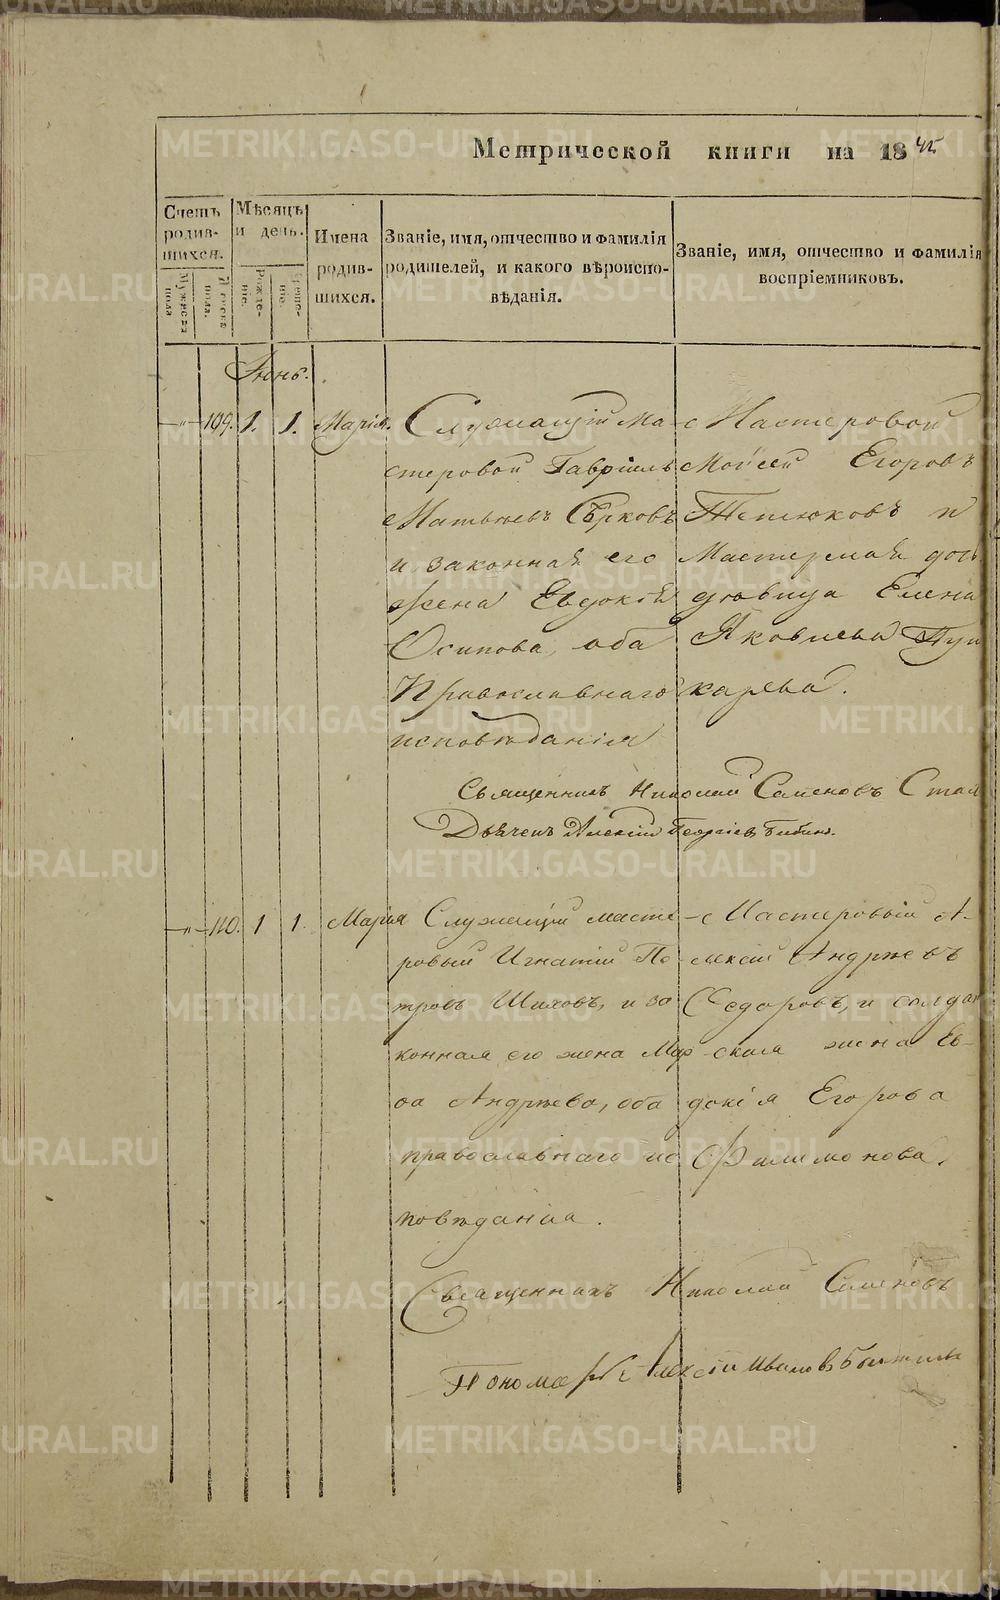 METRIKI.GASO-URAL.RU
Метрической книги на 1845
Счетъ родив-шихся.
Мужеска пола
Женска пола.
Мѣсяцъ и день.
Рожде-ніе.
Креще-ніе.
Имена родив-шихся.
Званіе, имя, отчество и фамилія
родителей, и какого вѣроиспо-
вѣданія.
Званіе, имя, отчество и фамилія
воспріемниковъ.
Іюнь.
109. 1. 1. Марія.
Служащій Ма-
стеровой Гавріилъ
Матвѣевъ Сѣрковъ
и законная его
жена Евдокія
Осипова, оба
Православнаго
исповѣданія
Мастеровой
Моисей Егоровъ
и
Мастерская
вдовица Елена
Яковлева
Священникъ Николай Семеновъ
Дьячекъ Алексій Георгіев
110. 1 1. Марія
Служащій масте-
ровый Игнатій Пе-
тровъ Шиховъ, и за-
конная его жена Мар-
ѳа Андреева, оба
православнаго ис
повѣданія.
Мастеровый А-
лексій Андреевъ
Седоровъ, и солдат
ская жена Ев-
докія Егорова
Филимонова.
Священникъ Николай Семеновъ
Пономарь Алексій Ивановъ